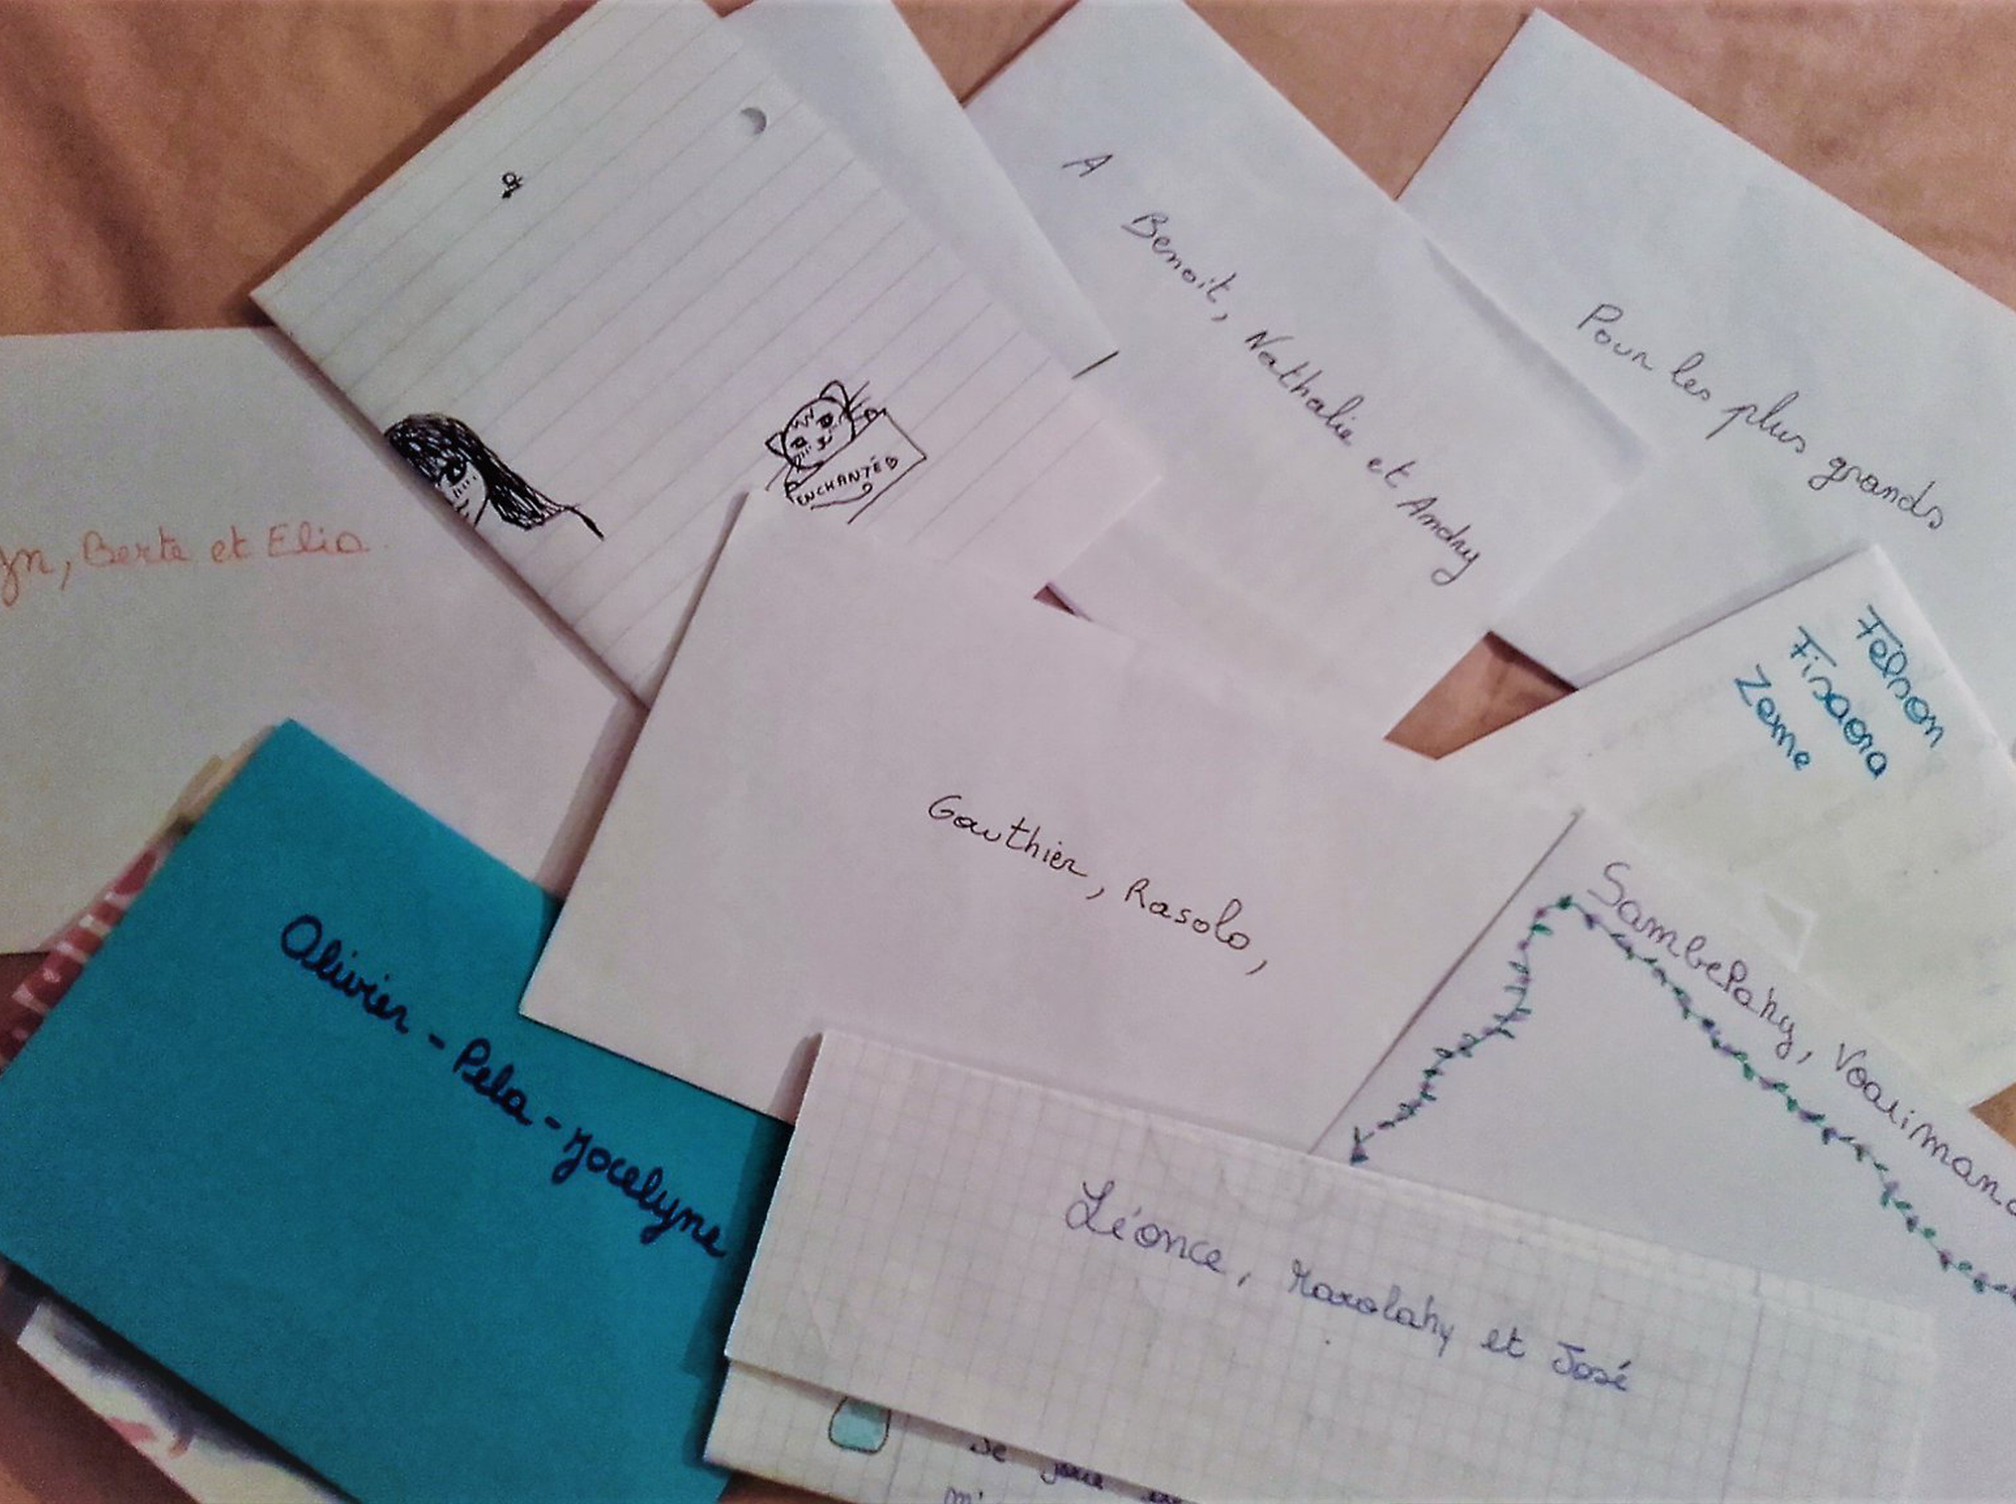 A
Benoit, Nathalie et Andry
Pour les plus grands
ENCHANTÉ
Berte et Elia
Felson
Fisaora
Zome
Gauthier, Rasolo,
Sambelahy, Voarimana
Olivier - Pela - Jocelyne
Léonce, Marolahy et José
Je joue
m'